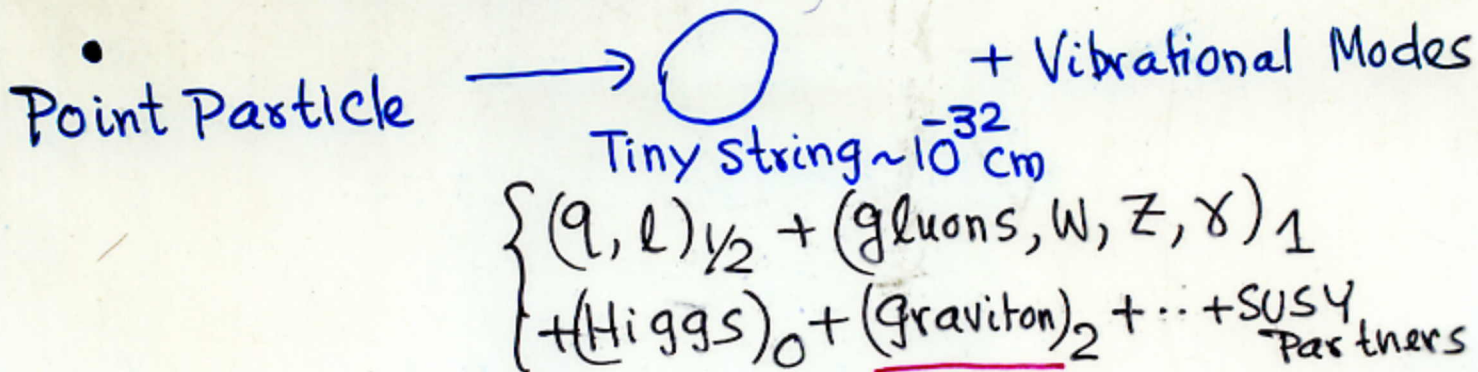 Point Particle → + Vibrational Modes
Tiny String ~ 10⁻³² cm
{ (q, l)₁/₂ + (gluons, W, Z, γ)₁
+ (Higgs)₀ + (graviton)₂ + ·· + SUSY Partners